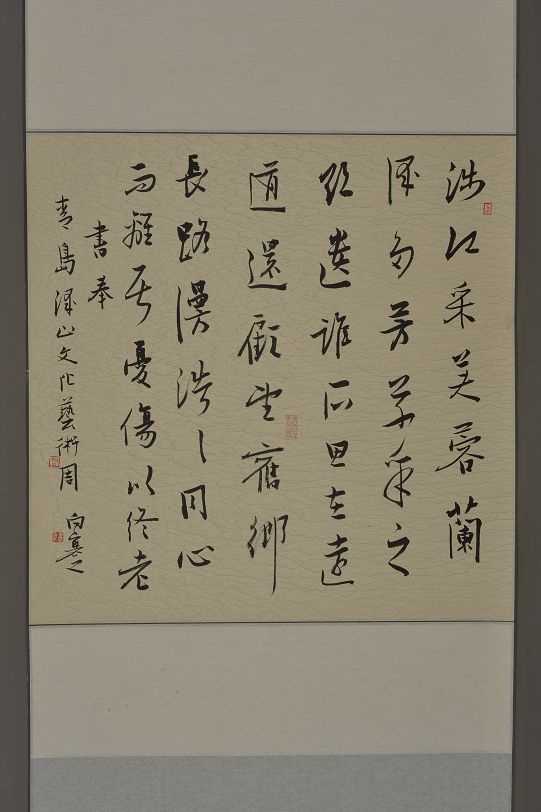 涉江采芙蓉蘭
澤多芳草采之
欲遺誰所思在遠
道還顧望舊鄉
長路漫浩〻同心
而離居憂傷以終老
書奉
青島澤山文化藝術周